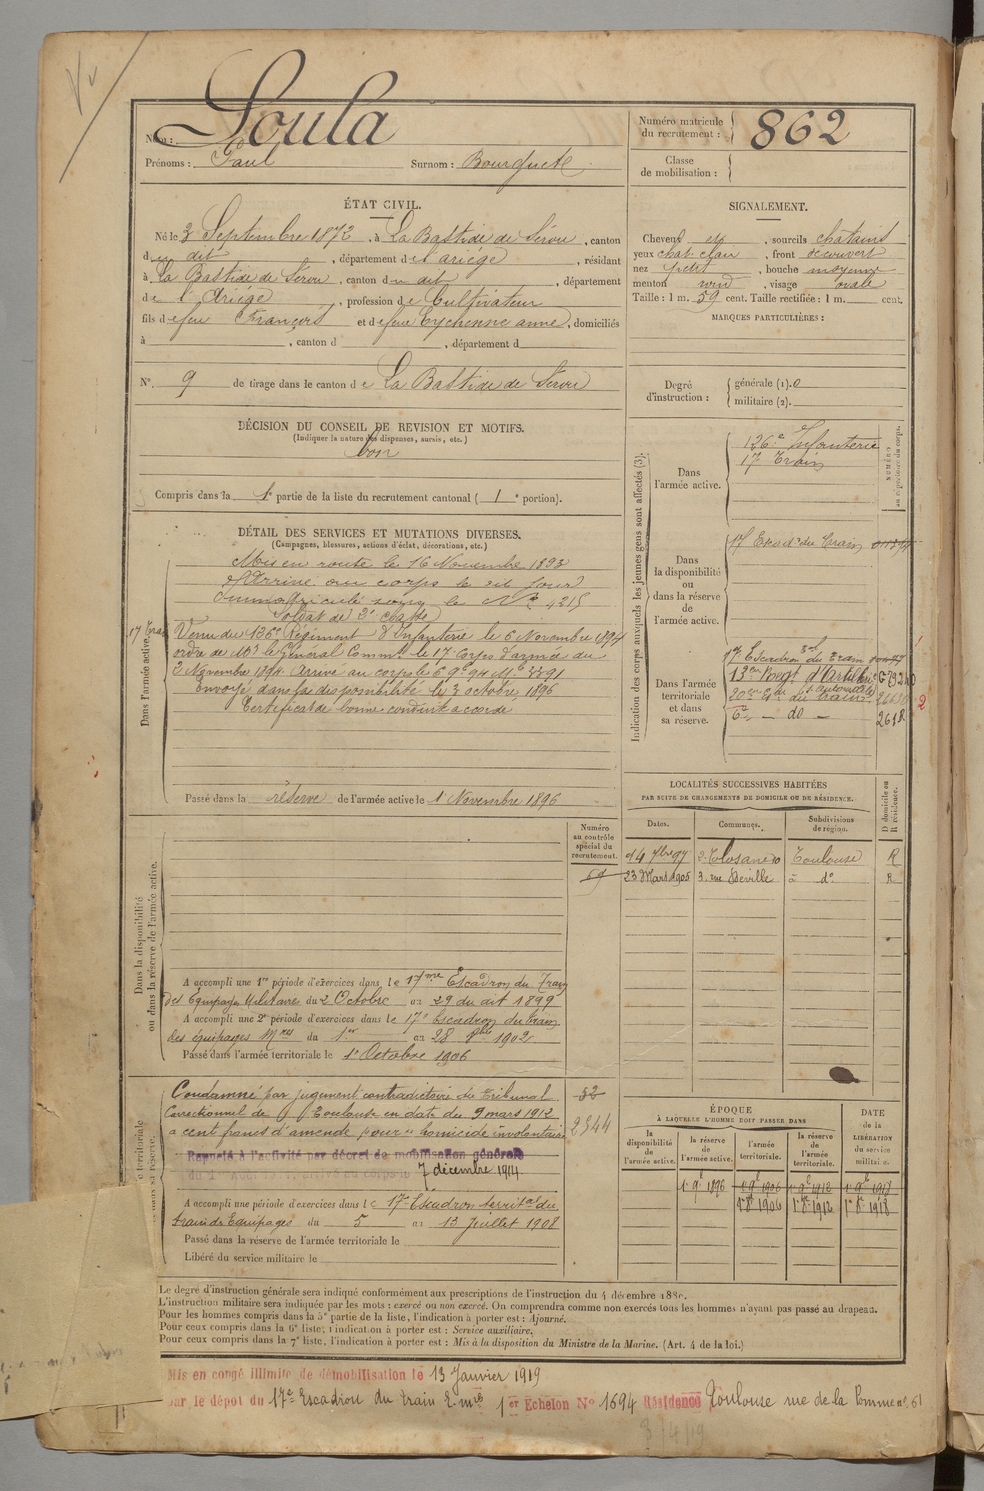 Soula
Nom :
Prénoms : Paul Surnom : Bourguete
Numéro matricule
du recrutement : 862
Classe
de mobilisation :
ÉTAT CIVIL.
Né le 3 Septembre 1872, à La Bastide de Sérou, canton
du dit, département de l'ariége, résidant
à La Bastide de Sérou, canton du dit, département
de l'Ariége, profession de Cultivateur
fils de feu François et de feu Eychenne anne, domiciliés
à , canton d , département d
N° 9 de tirage dans le canton de La Bastide de Sérou
SIGNALEMENT.
Cheveux et, sourcils chatains
yeux chat. clair, front découvert
nez petit, bouche moyenne
menton rond, visage ovale
Taille : 1 m. 59 cent. Taille rectifiée : 1 m. cent.
MARQUES PARTICULIÈRES :
Degré
d'instruction :
générale (1). 0
militaire (2).
DÉCISION DU CONSEIL DE REVISION ET MOTIFS.
(Indiquer la nature des dispenses, sursis, etc.)
bon
Compris dans la 1e partie de la liste du recrutement cantonal ( 1 e portion).
DÉTAIL DES SERVICES ET MUTATIONS DIVERSES.
(Campagnes, blessures, actions d'éclat, décorations, etc.)
Dans l'armée active.
Mis en route le 16 Novembre 1893
Arrivé au corps le dit jour
Immatriculé sous le N° 4215
Soldat de 2e classe
17 Train Venu du 126e Régiment d'Infanterie le 6 Novembre 1894
ordre de Mr le Général Commt le 17e Corps d'armée du
2 Novembre 1894. Arrivé au corps le 6 9e 94 Me 3391
Envoyé dans la disponibilité le 3 octobre 1896
Certificat de bonne conduite accordé
Passé dans la réserve de l'armée active le 1 Novembre 1896
Indication des corps auxquels les jeunes gens sont affectés (3).
NUMÉRO
au répertoire du corps.
Dans
l'armée active.
126e Infanterie
17 Train
Dans
la disponibilité
ou
dans la réserve
de
l'armée active.
17 Escadn du Train
Dans l'armée
territoriale
et dans
sa réserve.
17e Escadron terl du Train
13e Régt d'Artillerie
20e Ern du train
6e — do — 2612
2
LOCALITÉS SUCCESSIVES HABITÉES
PAR SUITE DE CHANGEMENTS DE DOMICILE OU DE RÉSIDENCE.
Dates. Communes. Subdivisions de région. D domicile ou R résidence.
14 7bre 97 Toulouse R
23 Mars 1905 3. rue Deville à do R
Dans la disponibilité
ou dans la réserve de l'armée active.
Numéro
au contrôle
spécial du
recrutement.
69
A accompli une 1re période d'exercices dans le 17me Escadron du Train
des Equipages Militaires du 2 Octobre au 29 du dit 1899
A accompli une 2e période d'exercices dans le 17e Escadron du train
des équipages Mres du 1er au 28 8bre 1902
Passé dans l'armée territoriale le 1e Octobre 1906
Condamné par jugement contradictoire du Tribunal
Correctionnel de Toulouse en date du 9 mars 1912
a cent francs d'amende pour "homicide involontaire"
32
2344
Rappelé à l'activité par décret de mobilisation générale
du 1er Août 1914. arrivé au corps le 7 décembre 1914.
A accompli une période d'exercices dans le 17e Escadron territal du
train des Equipages du 5 au 13 Juillet 1908
Passé dans la réserve de l'armée territoriale le
Libéré du service militaire le
ÉPOQUE
À LAQUELLE L'HOMME DOIT PASSER DANS
DATE
de la
LIBÉRATION
du service
militaire.
la disponibilité de l'armée active.
la réserve de l'armée active.
l'armée territoriale.
la réserve de l'armée territoriale.
1e 9e 1896 1e 9e 1906 1e 9e 1912 1e 9e 1918
1er 8e 1906 1er 8e 1912 1er 8e 1918
Le degré d'instruction générale sera indiqué conformément aux prescriptions de l'instruction du 4 décembre 1889.
L'instruction militaire sera indiquée par les mots : exercé ou non exercé. On comprendra comme non exercés tous les hommes n'ayant pas passé au drapeau.
Pour les hommes compris dans la 5e partie de la liste, l'indication à porter est : Ajourné.
Pour ceux compris dans la 6e liste, l'indication à porter est : Service auxiliaire.
Pour ceux compris dans la 7e liste, l'indication à porter est : Mis à la disposition du Ministre de la Marine. (Art. 4 de la loi.)
Mis en congé illimité de démobilisation le 13 Janvier 1919
par le dépot du 17e Escadron du train E. mres 1er Echelon N° 1694 Résidence Toulouse rue de la Pomme n° 61
3/4/19